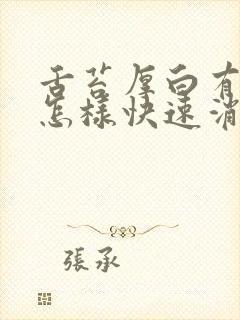 舌苔厚白有
怎樣快速消
張承